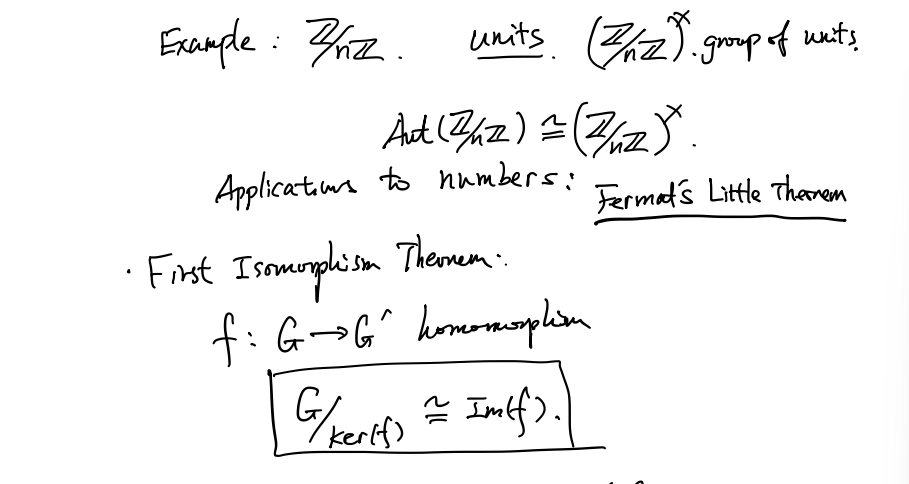 Example : ℤ/nℤ . units . (ℤ/nℤ)^× . group of units.
Aut(ℤ/nℤ) ≅ (ℤ/nℤ)^× .
Applications to numbers : Fermat's Little Theorem
· First Isomorphism Theorem :
f : G → G' homomorphism
G/ker(f) ≅ Im(f) .